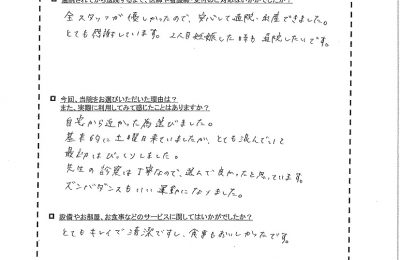 全スタッフが優しかったので、安心して通院・出産できました。
とても感謝しています。2人目妊娠した時も通院したいです。
■ 今回、当院をお選びいただいた理由は？
また、実際に利用してみて感じたことはありますか？
自宅から近かった為選びました。
基本的に土曜日来ていましたが、とても混んでいて
最初はびっくりしました。
先生の診察は丁寧なので、選んで良かったと思っています。
ズンバダンスもいい運動になりました。
■ 設備やお部屋、お食事などのサービスに関してはいかがでしたか？
とてもキレイで清潔ですし、食事もおいしかったです。